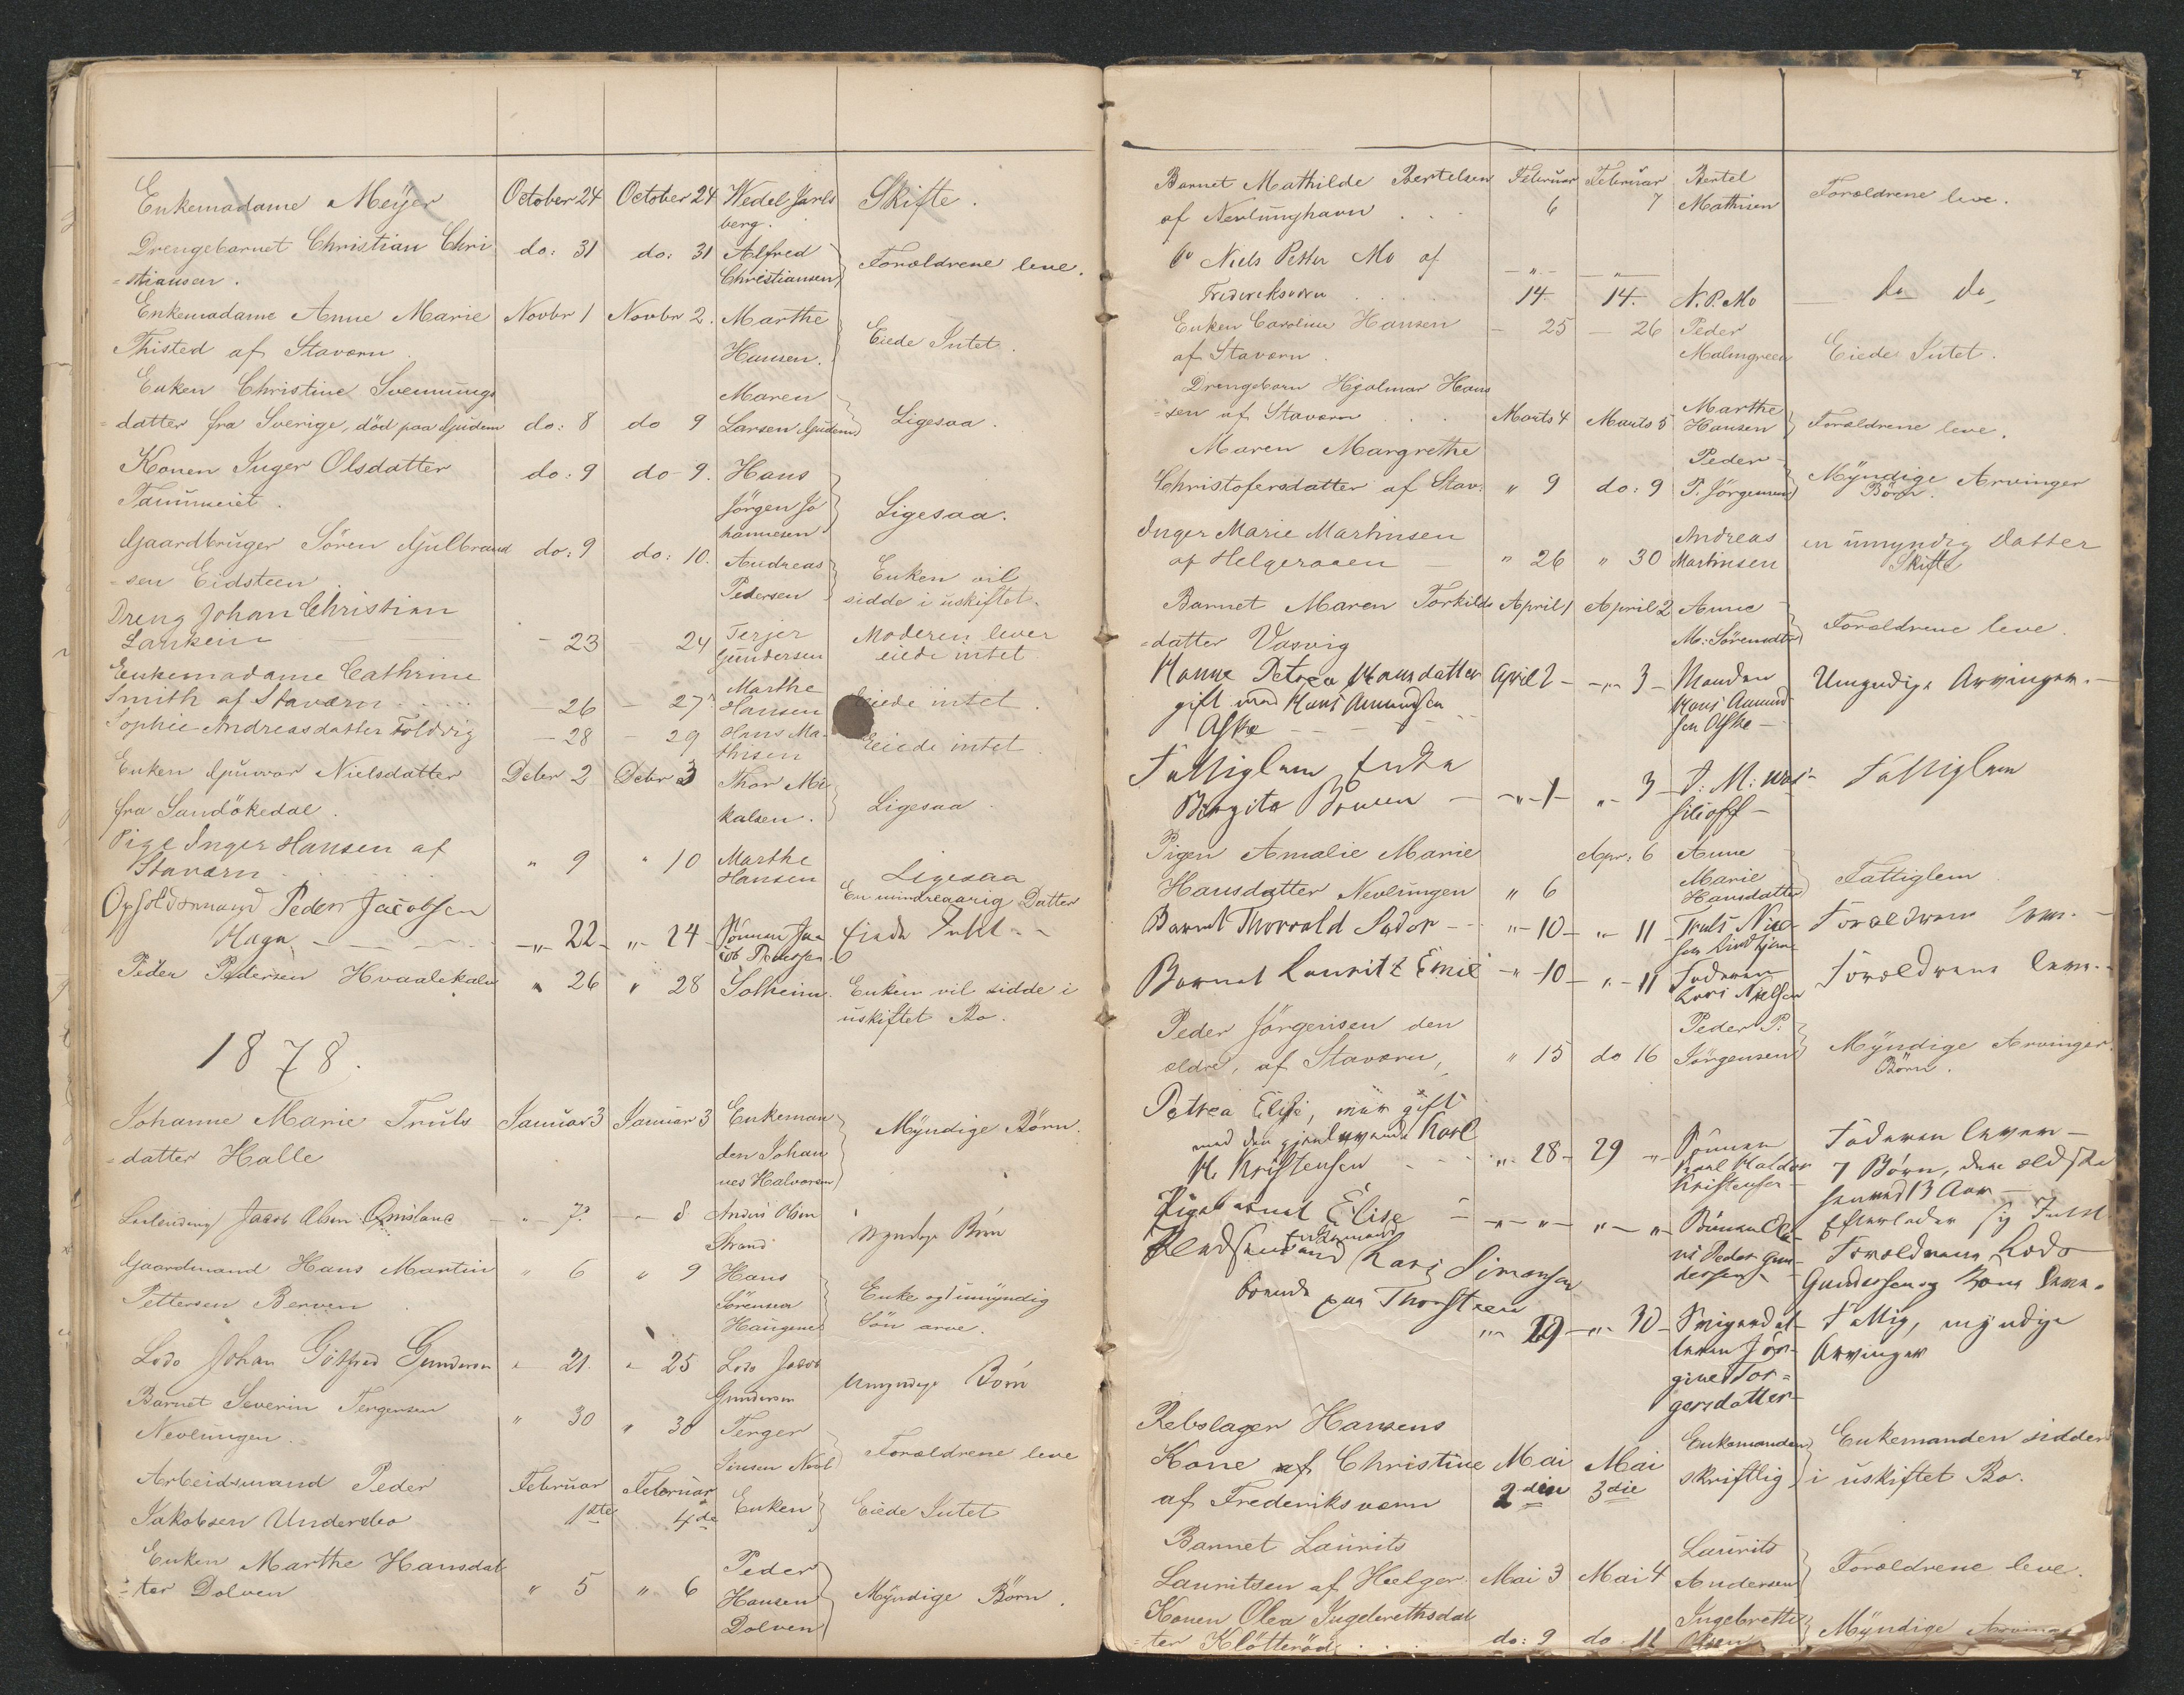 Enkemadame Meyer October 24 October 24 Wedel Jarls Skifte.
berg.
Drengebarnet Christian Chri do: 31 do: 31 Alfred Forældrene leve.
=stiansen. Christiansen
Enkemadame Anne Marie Novbr 1 Novbr 2. Marthe Eiede Intet.
Thisted af Staværn Hansen.
Enken Christine Svennungs Maren
=datter fra Sverige, død paa do: 8 do 9 Larsen Ligesaa.
Konen Inger Olsdatter do: 9 do 9. Hans
Jörgen Jo Ligesaa.
hannesen
Gaardbruger Sören Gulbrand do: 9 do: 10. Andreas Enken vil
=sen Eidsteen Pedersen sidde i uskiftet.
Dreng Johan Christian
Lanken 23 24 Terjer Moderen lever
Gundersen eiede intet
Enkemadame Cathrine
Smith af Staværn 26 27 Marthe Hansen Eiede intet.
Sophie Andreasdatter Foldvig 28 29 Hans Ma- Eiede intet.
thisen
Enken Gunvor Nielsdatter Debr 2 Debr 3 Thor Mi
fra Sandökedal. kalsen. Ligesaa
Pige Inger Hansen af
Staværn " 9 " 10 Marthe Ligesaa
Hansen En mindreaarig Datter
Opholdsmand Peder Jacobsen
Haga -"- 22 -"- 24 Sönnen Ja- Eiede Intet
cob Pedersen
Peder Pedersen Hvaalekale " 26 " 28 Solheim. Enken vil sidde i
uskiftet Bo.
1878.
Johanne Marie Truls Januar 3 Januar 3 Enkeman Myndige Börn.
=datter Halle den Johan
nes Halvorsen
Jacob Olsen 7. 8 Anders Olsen Myndige Börn
Strand
Gaardmand Hans Martin " 6 " 9 Hans Enke og 1 umyndig
Pettersen Berven Sörensen Sön arve.
Haugene
Lods Johan Gotfred Gundersen 21. 25 Lods Jacob Umyndige Börn
Gundersen
Barnet Severin Tergersen " 30 " 30 Terger
Nevlungen. Forældrene leve
Arbeidsmand Peder Februar Februar Enken Eiede Intet
Jakobsen Undersbo 1ste 4de
Enken Marthe Hansdat Peder
=ter Dolven " 5 " 6 Hansen Myndige Börn.
Dolven
Barnet Mathilde Bertelsen Februar Februar Bertel Forældrene leve.
af Nevlunghavn 6 7 Mathisen
Do Niels Petter Mo af
Frederiksværn 14. 14. N. P. Mo do do
Enken Caroline Hansen 25 26 Peder
af Staværn Malmgreen Eiede Intet.
Drengebarn Hjalmar Han
=sen af Staværn Marts 4 Marts 5 Marthe Hansen Forældrene leve.
Maren Margrethe Peder
Christofersdatter af Stav: " 9 do: 9 P. Jörgensen Myndige Arvinger
Börn.
Inger Marie Martinsen Andreas en umyndig Datter
af Helgeroaen " 26 " 30 Martinsen Skifte
Barnet Maren Torkilds April 1 April 2 Anne
=datter Vasvig M: Sörensdtr Forældrene leve.
Hanne Petrea Hansdatter April 2 -"- 3 Manden Umyndige Arvinger.
gift med Hans Amundsen Hans Amund-
Aske sen Aske
Fattiglem Enke
Birgite -"- 1 " 3 J. M: Was- Fattiglem
silioff
Pigen Amalie Marie Apr: 6 Anne
Hansdatter Nevlungen " 6 Marie Fattiglem
Hansdatter
Barnet Thorvald " 10 " 11 Truls Niel- Forældrene leve.
sen
Barnet Lauritz Emil " 10 " 11 Faderen Forældrene leve.
Lars Nielsen
Peder Jörgensen den Peder P.
ældre, af Staværn, " 15 do 16 Jörgensen Myndige Arvinger.
Börn.
Petrea Elise, gift
med den gjenlevende Karl " 28 29 " Faderen lever
H. Kristensen Karl Haldor 7 Börn, den ældste
Kristensen 13 Aar
Pigebarnet Elise Efterlader sig Intet
Peder Gun- Forældrene Lods
dersen Gundersen og Kone leve.
Enkemand Lars Simonsen
boende paa Thorsteen
" 29 " 30 Fattig, myndige
Arvinger
gine Tor=
gersdatter
Rebslager Hansens
Kone af Christine Mai Mai Enkemanden Enkemanden sidder
af Frederiksværn 2den 3die skriftlig i uskiftet Bo.
Barnet Laurits Laurits
Lauritsen af Helger. Mai 3 Mai 4 Andersen Forældrene leve.
Konen Olea Ingebrethsdat Ingebreth
=ter Klötteröd do: 9 do 11 Olsen Myndige